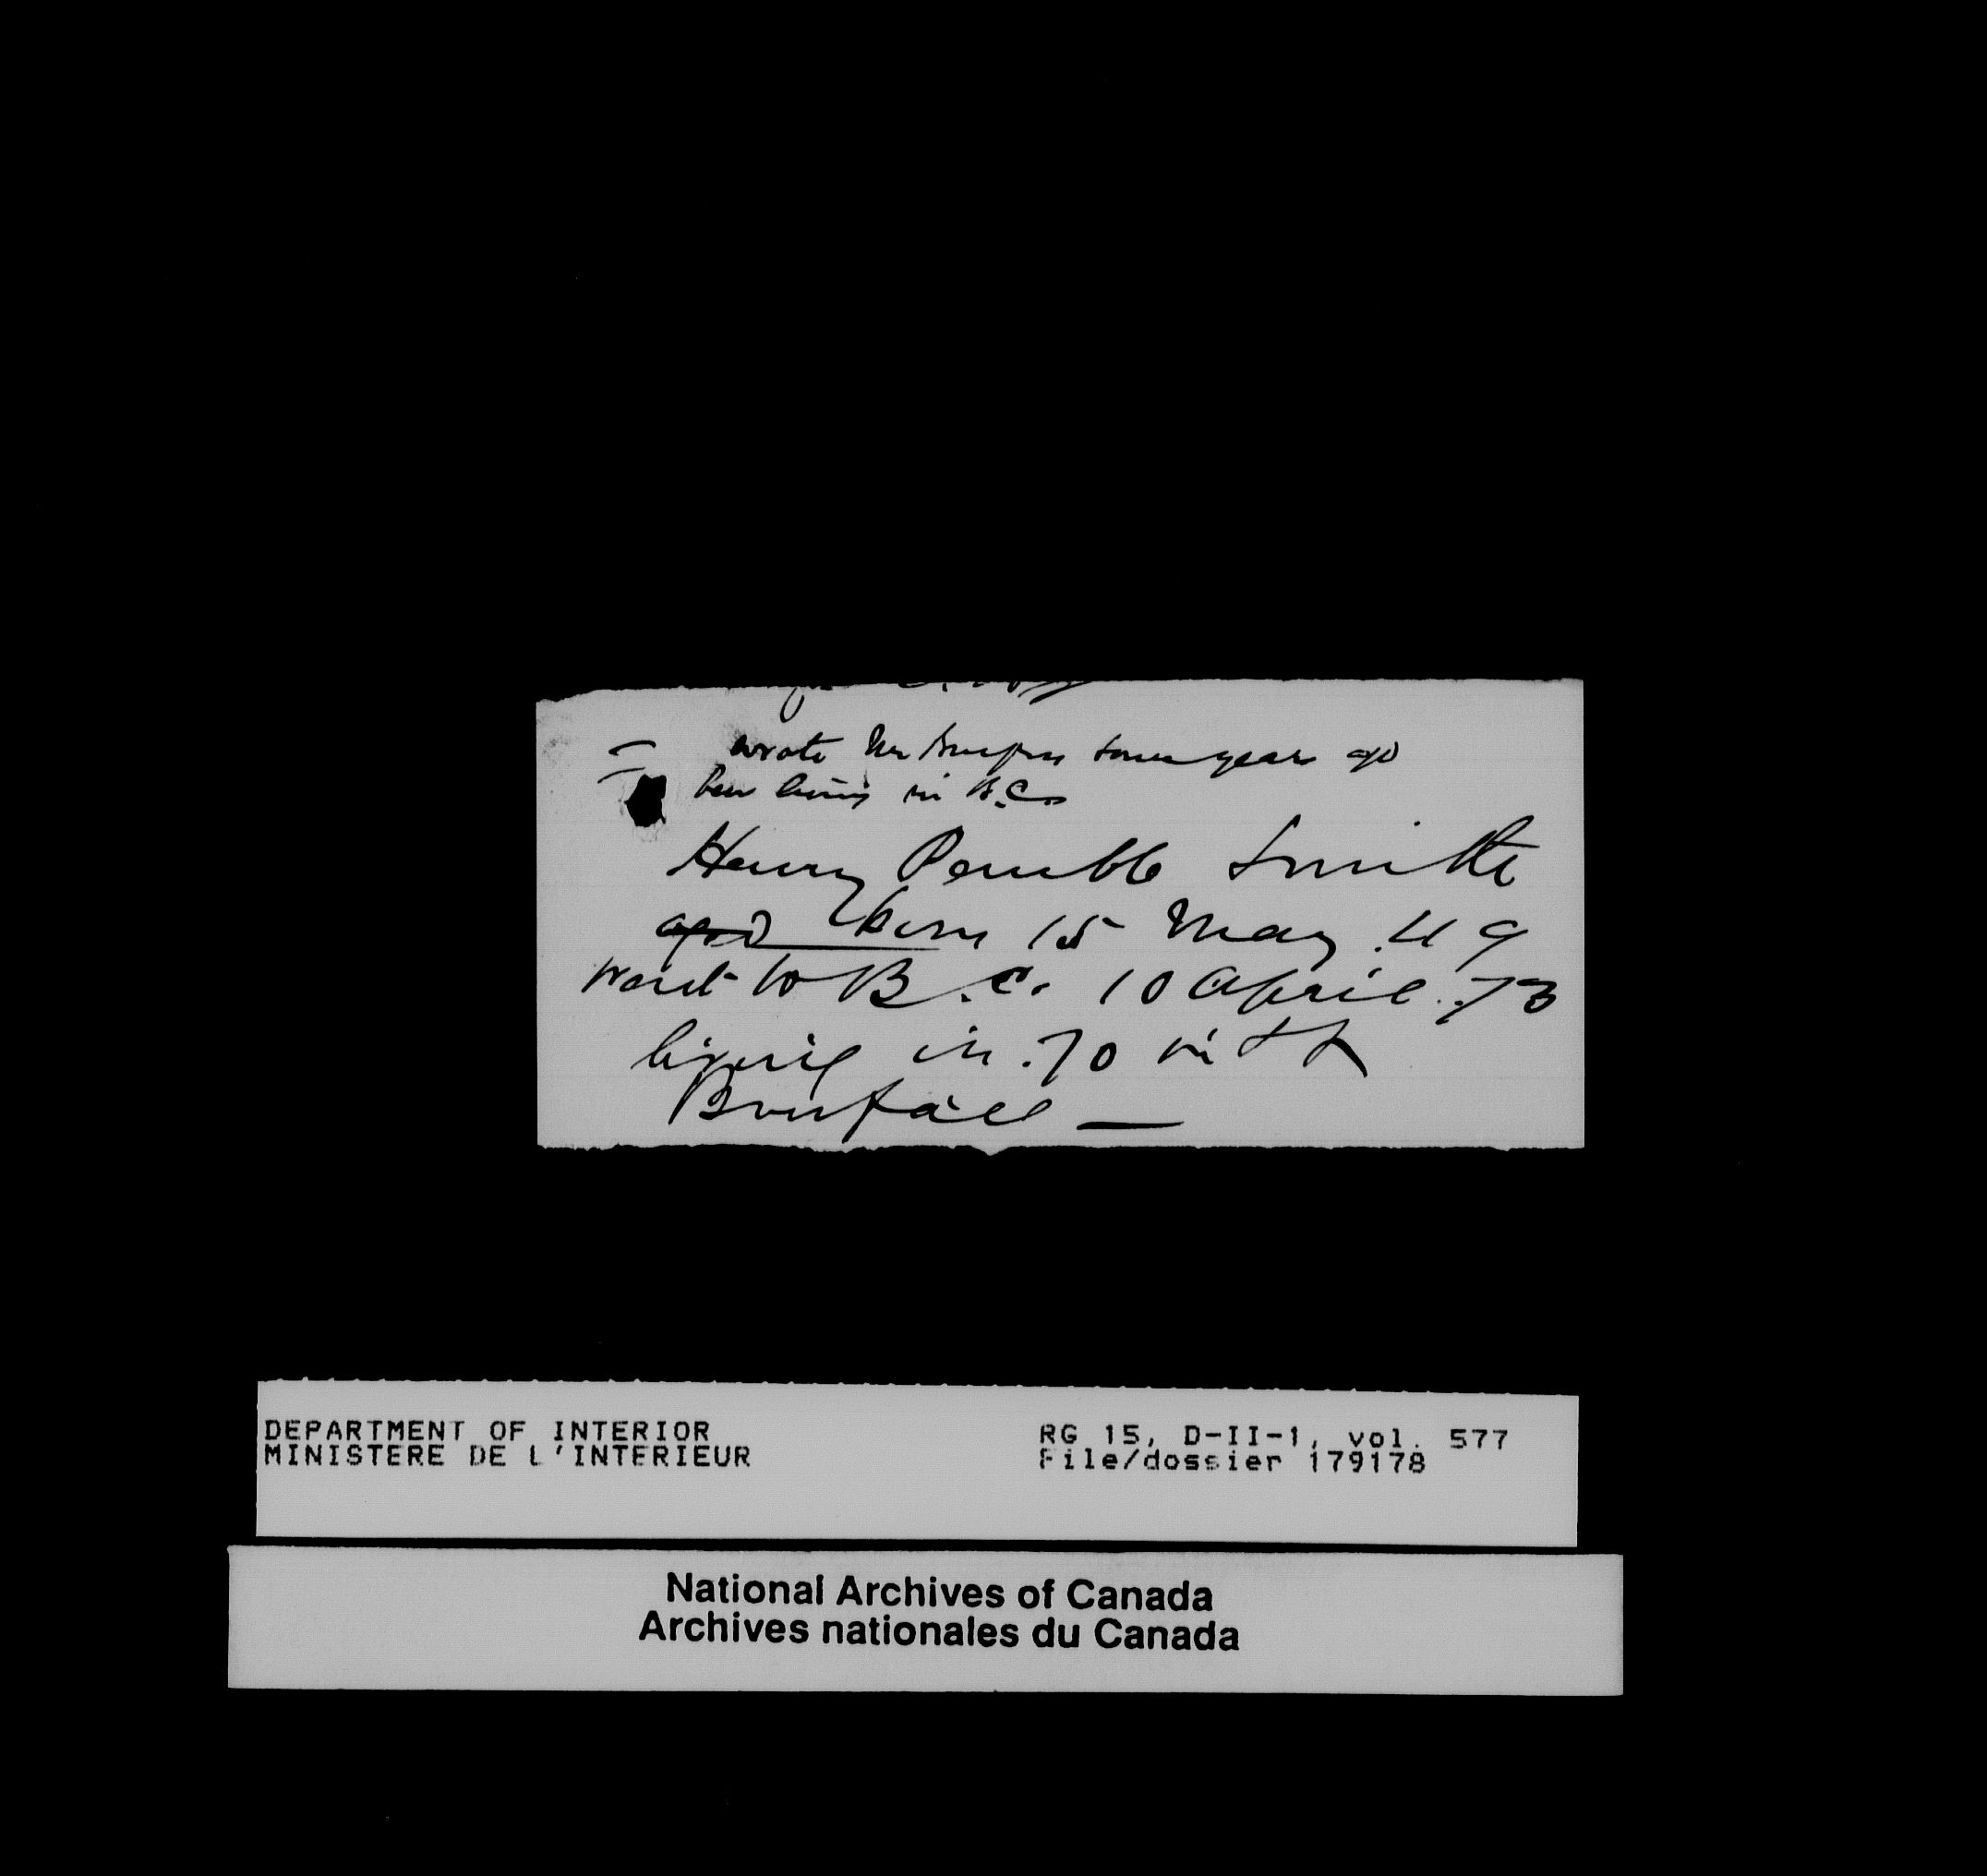 wrote Mr some years ago
living in B.C.
Henry Smith
aged born 15 May .49
went to B.C. 10 April .73
living in .70 in St
Boniface —
DEPARTMENT OF INTERIOR
MINISTERE DE L'INTERIEUR
RG 15, D-II-1, vol. 577
File/dossier 179178
National Archives of Canada
Archives nationales du Canada